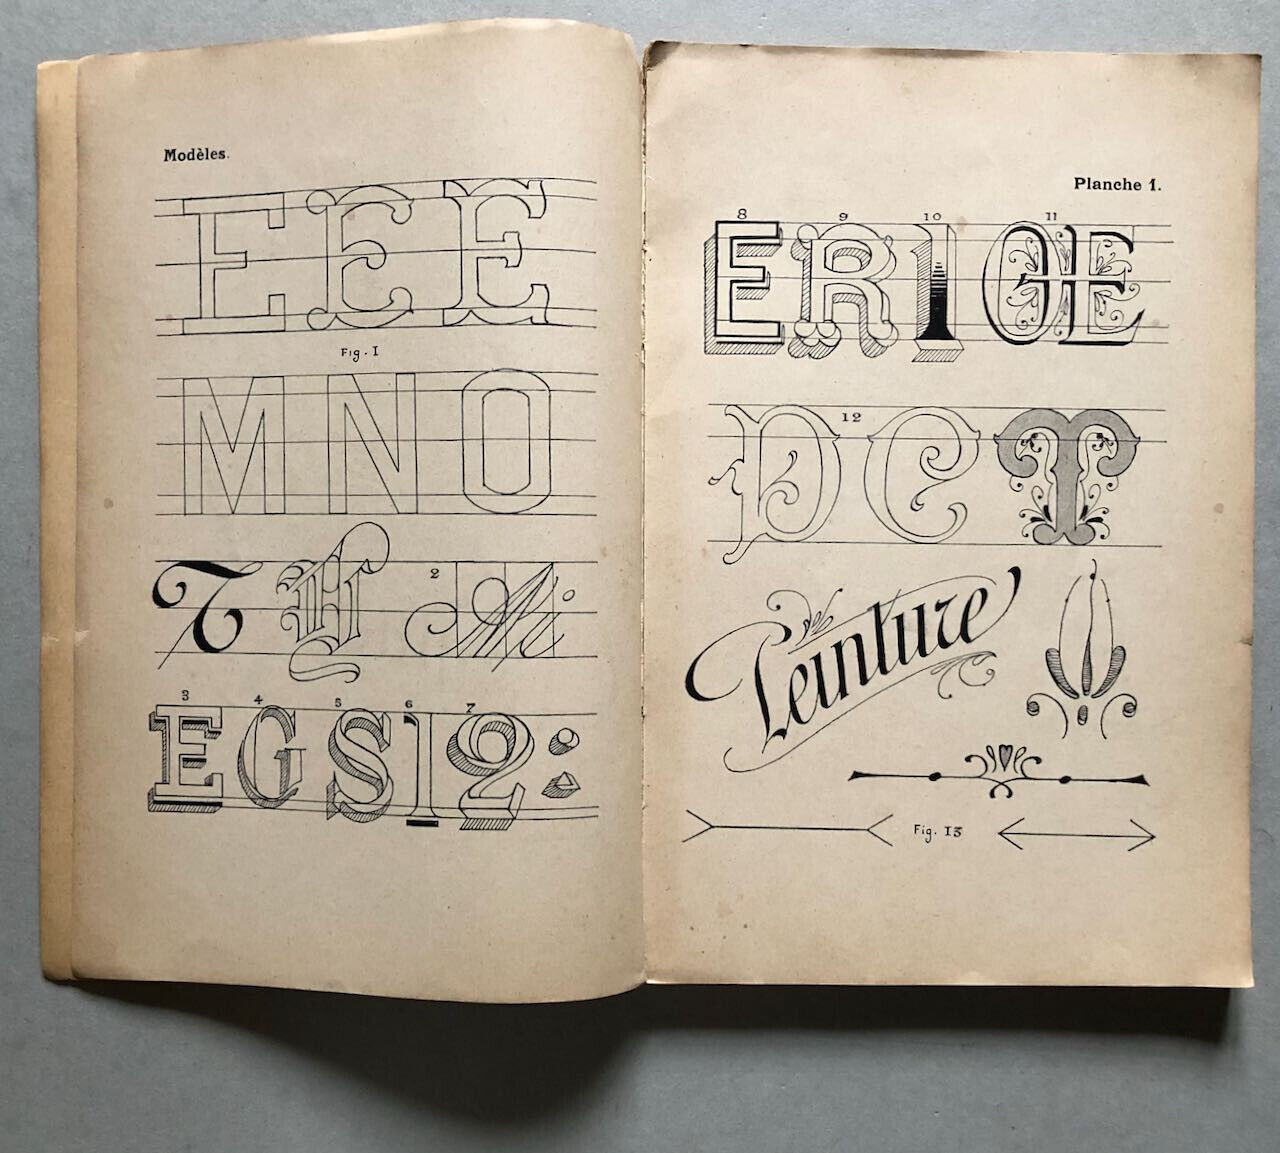 Modèles.
E E E
Fig. 1
M N O
2
T H Mi
3 4 5 6 7
E G S 1 2
Planche 1.
8 9 10 11
E R 1 O E
12
D C T
Teinture
Fig. 13